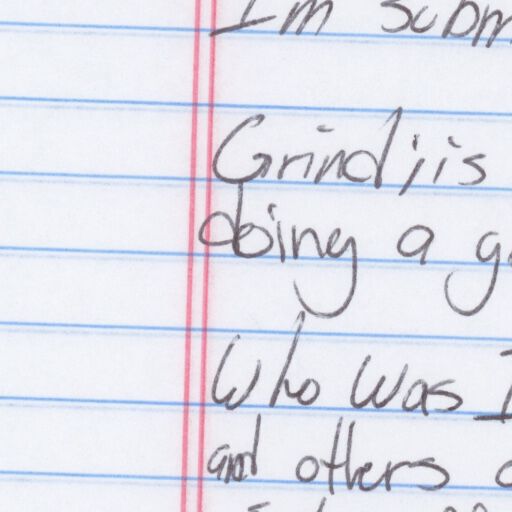 Im subm
Grind; is
doing a g
Who was I
and others